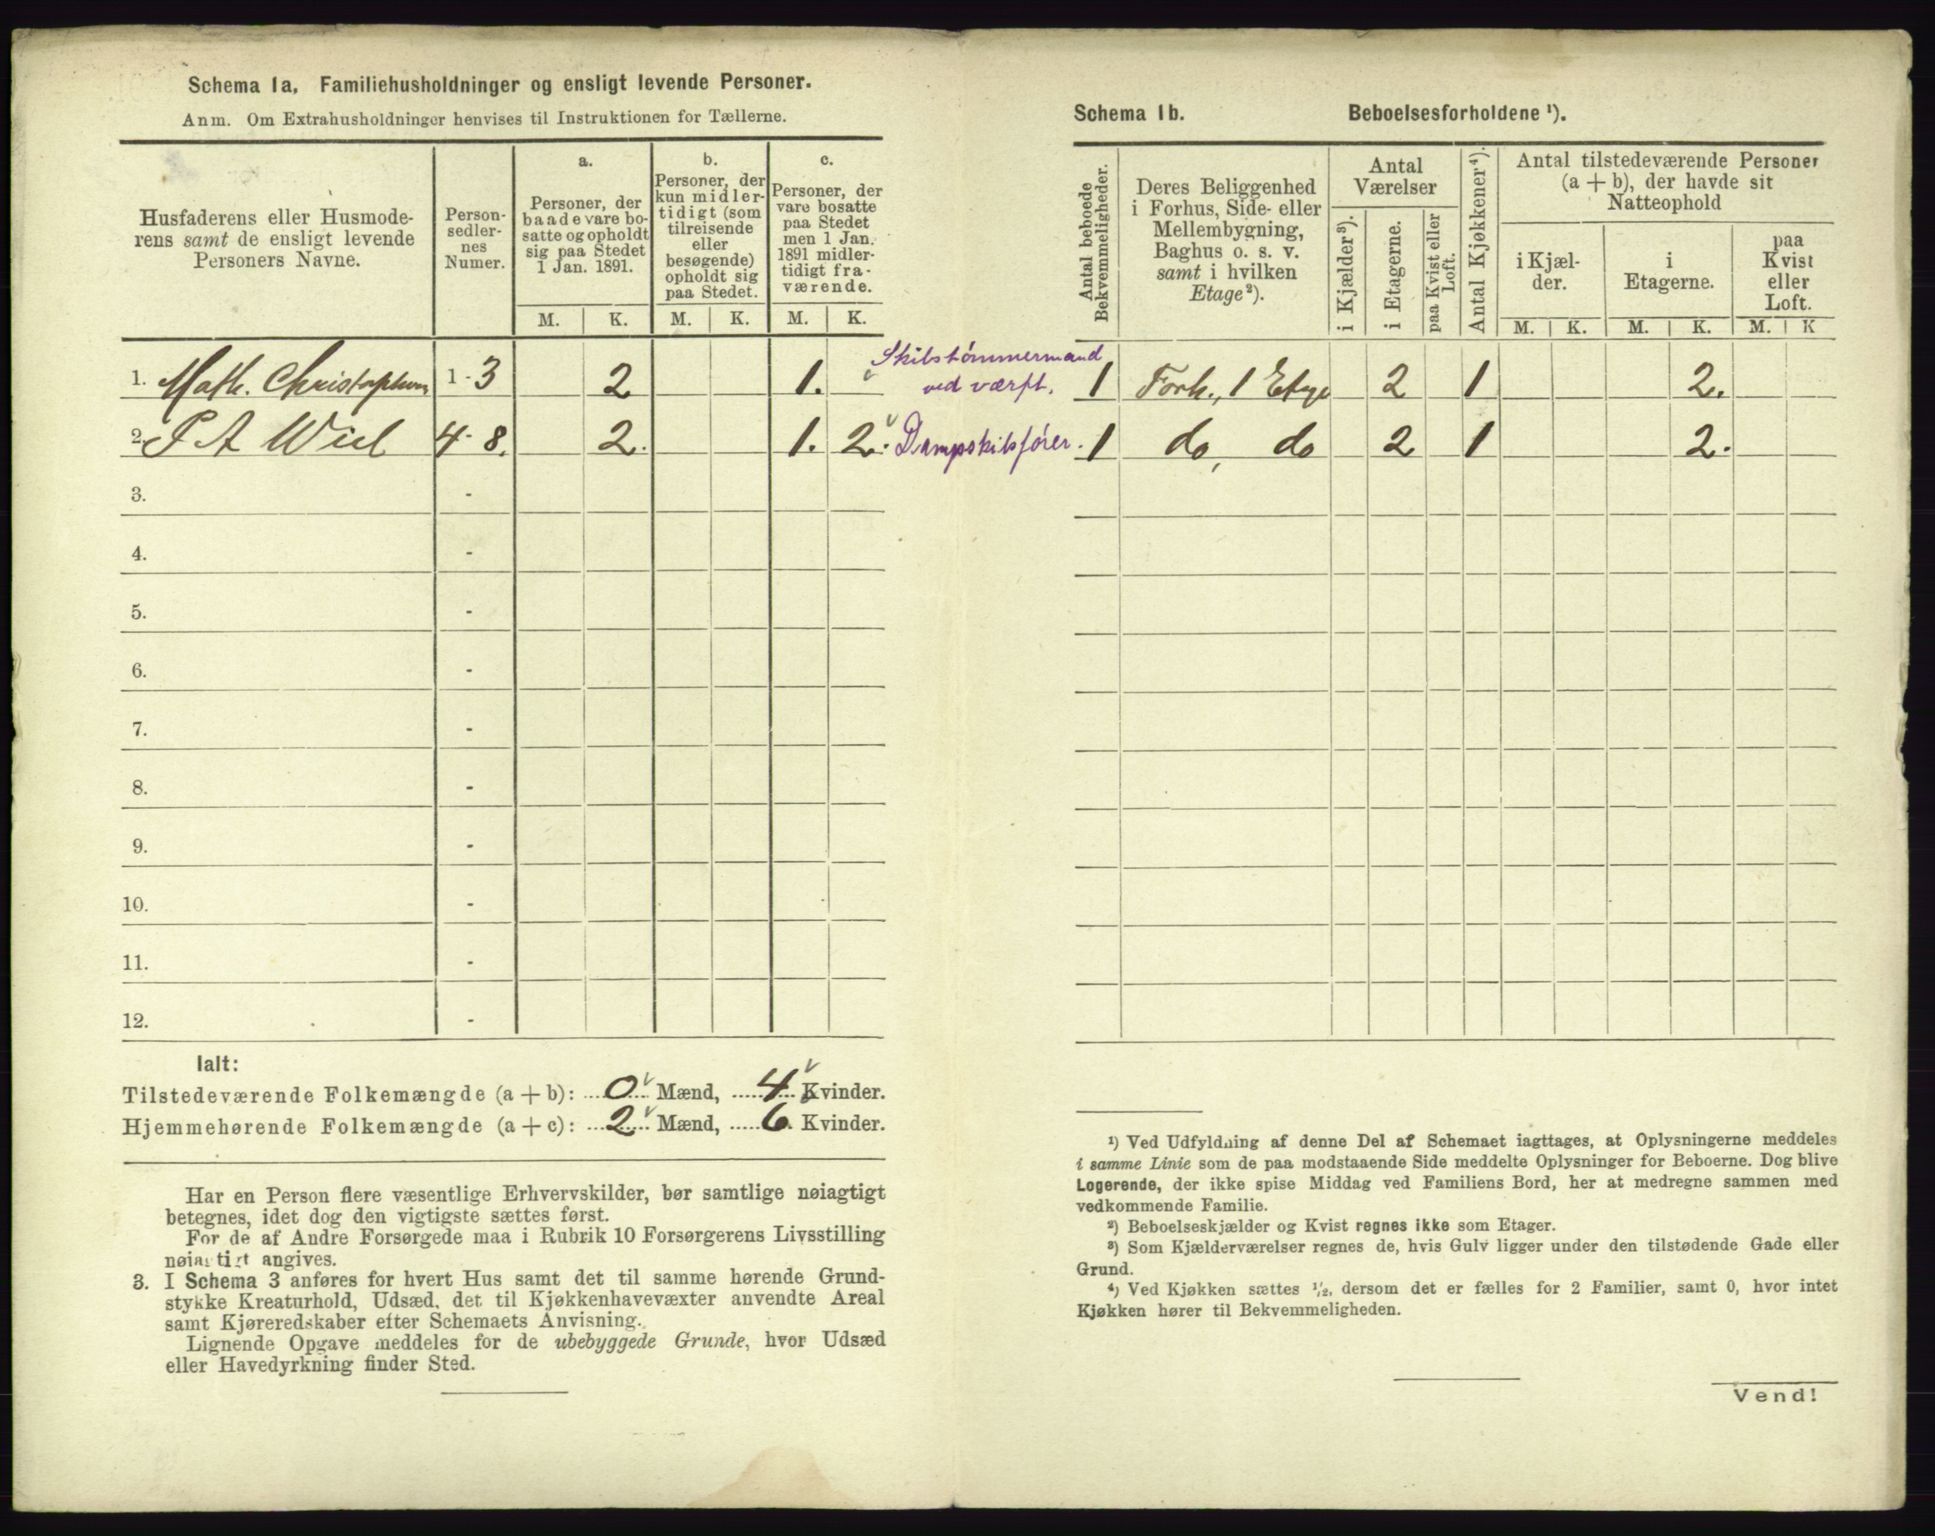 Schema 1a. Familiehusholdninger og ensligt levende Personer.
Anm. Om Extrahusholdninger henvises til Instruktionen for Tællerne.
Husfaderens eller Husmode-
rens samt de ensligt levende
Personers Navne.
Person-
sedler-
nes
Numer.
a.
Personer, der
baade vare bo-
satte og opholdt
sig paa Stedet
1 Jan. 1891.
b.
Personer, der
kun midler-
tidigt (som
tilreisende
eller
besøgende)
opholdt sig
paa Stedet.
c.
Personer, der
vare bosatte
paa Stedet
men 1 Jan.
1891 midler-
tidigt fra-
værende.
M. K. M. K. M. K.
1. Math. Christophersen 1-3 2 1. Skibstømmermand
ved værft.
2. P A Wiel 4-8. 2. 1. 2. Dampskibsfører.
3. -
4. -
5. -
6. -
7. -
8. -
9. -
10. -
11. -
12. -
Ialt:
Tilstedeværende Folkemængde (a + b): 0 Mænd, 4 Kvinder.
Hjemmehørende Folkemængde (a + c): 2 Mænd, 6 Kvinder.
Har en Person flere væsentlige Erhvervskilder, bør samtlige nøiagtigt
betegnes, idet dog den vigtigste sættes først.
For de af Andre Forsørgede maa i Rubrik 10 Forsørgerens Livsstilling
nøiagtigt angives.
3. I Schema 3 anføres for hvert Hus samt det til samme hørende Grund-
stykke Kreaturhold, Udsæd, det til Kjøkkenhavevæxter anvendte Areal
samt Kjøreredskaber efter Schemaets Anvisning.
Lignende Opgave meddeles for de ubebyggede Grunde, hvor Udsæd
eller Havedyrkning finder Sted.
Schema 1b. Beboelsesforholdene ¹).
Antal beboede
Bekvemmeligheder.
Deres Beliggenhed
i Forhus, Side- eller
Mellembygning,
Baghus o. s. v.
samt i hvilken
Etage²).
Antal
Værelser
i Kjælder³).
i Etagerne.
paa Kvist eller
Loft.
Antal Kjøkkener⁴).
Antal tilstedeværende Personer
(a + b), der havde sit
Natteophold
i Kjæl-
der.
i
Etagerne.
paa
Kvist
eller
Loft.
M. K. M. K. M. K
1 Forh., 1 Etage 2 1 2.
1 do, do 2 1 2.
¹) Ved Udfyldning af denne Del af Schemaet iagttages, at Oplysningerne meddeles
i samme Linie som de paa modstaaende Side meddelte Oplysninger for Beboerne. Dog blive
Logerende, der ikke spise Middag ved Familiens Bord, her at medregne sammen med
vedkommende Familie.
²) Beboelseskjælder og Kvist regnes ikke som Etager.
³) Som Kjælderværelser regnes de, hvis Gulv ligger under den tilstødende Gade eller
Grund.
⁴) Ved Kjøkken sættes ½, dersom det er fælles for 2 Familier, samt 0, hvor intet
Kjøkken hører til Bekvemmeligheden.
Vend!